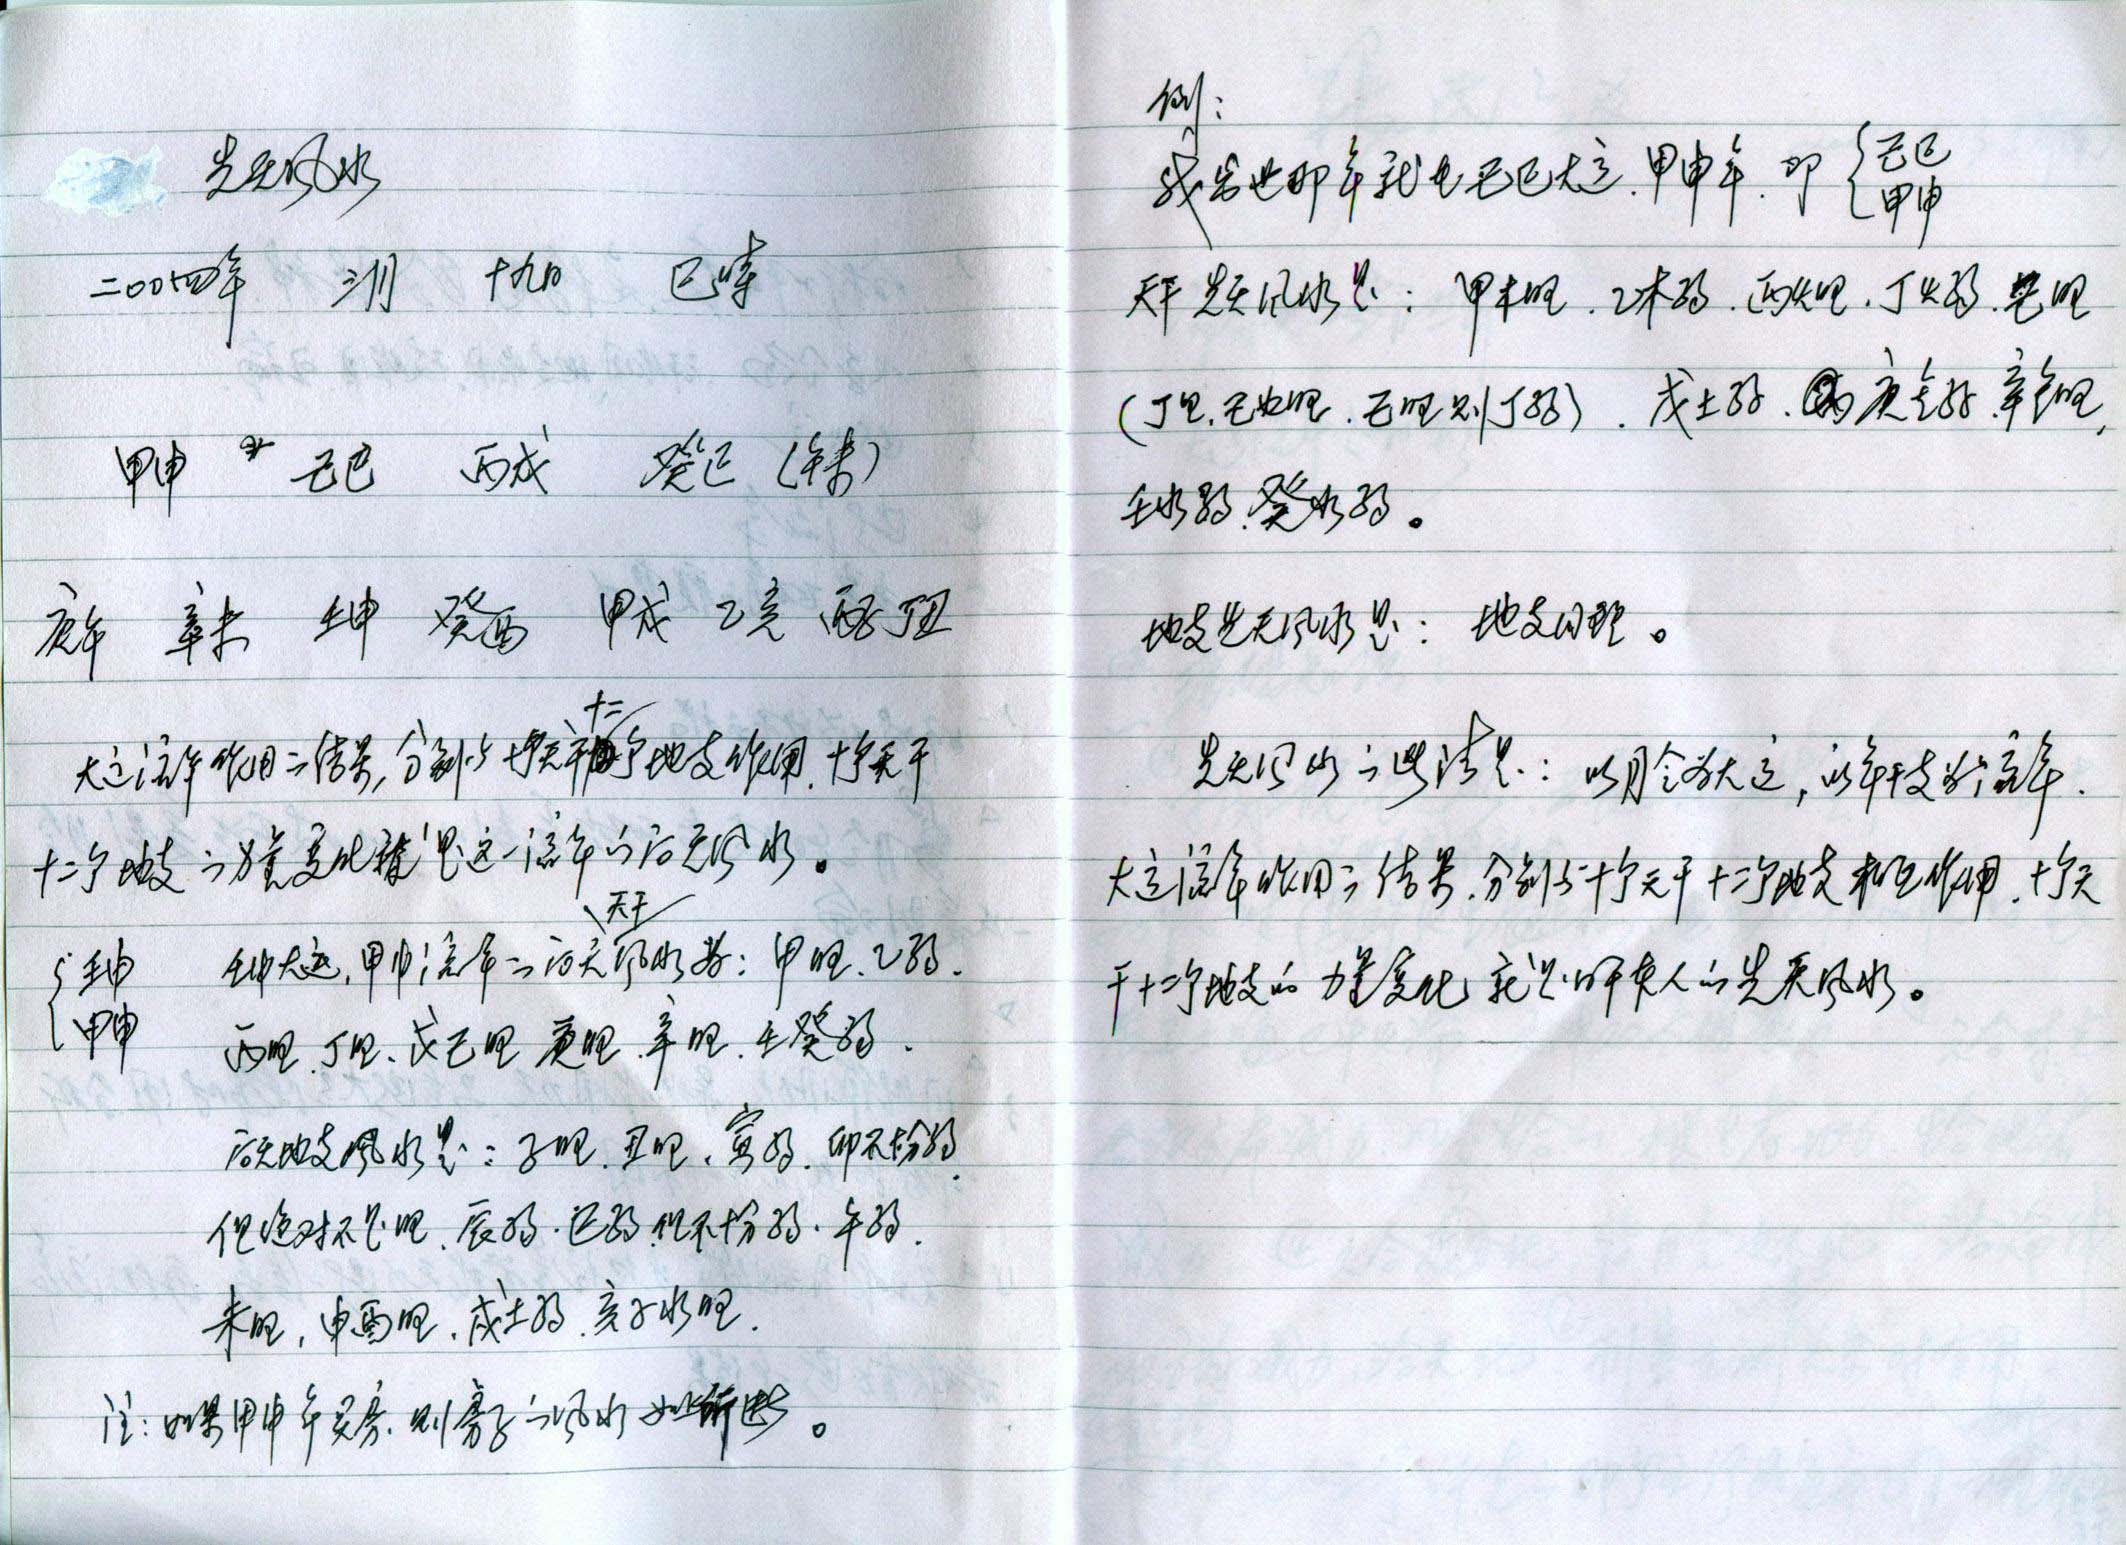 先天风水
二00四年 三月 十九日 巳时
甲申 己巳 丙戌 癸巳（午未）
庚午 辛未 壬申 癸酉 甲戌 乙亥 丙子 丁丑
大运流年作用之结果，分别与十个天干十二个地支作用，十个天干
十二个地支之力量变化就是这一流年的后天风水。
壬申 甲申 壬申大运，甲申流年之后天天干风水为：甲旺、乙弱、
丙旺、丁旺、戊己旺 庚旺、辛旺、壬癸弱、
后天地支风水是：子旺、丑旺、寅弱、卯不十分弱、
但绝对不是旺、辰弱、巳弱但不十分弱、午弱、
未旺，申酉旺、戌土弱、亥子水旺、
注：如果甲申年买房、则房子之风水如上所断。
例：
我出世那年就是己巳大运、甲申年、即 己巳 甲申
天干先天风水是：甲木旺、乙木弱、丙火旺、丁火弱、己旺
（丁旺、己也旺、己旺则丁弱）、戊土弱、庚金弱、辛金旺，
壬水弱、癸水弱。
地支先天风水是：地支同理。
先天风水之断法是：以月令为大运，以年干支为流年、
大运流年作用之结果、分别与十个天干十二个地支相互作用、十个天
干十二个地支的力量变化就是时下来人的先天风水。